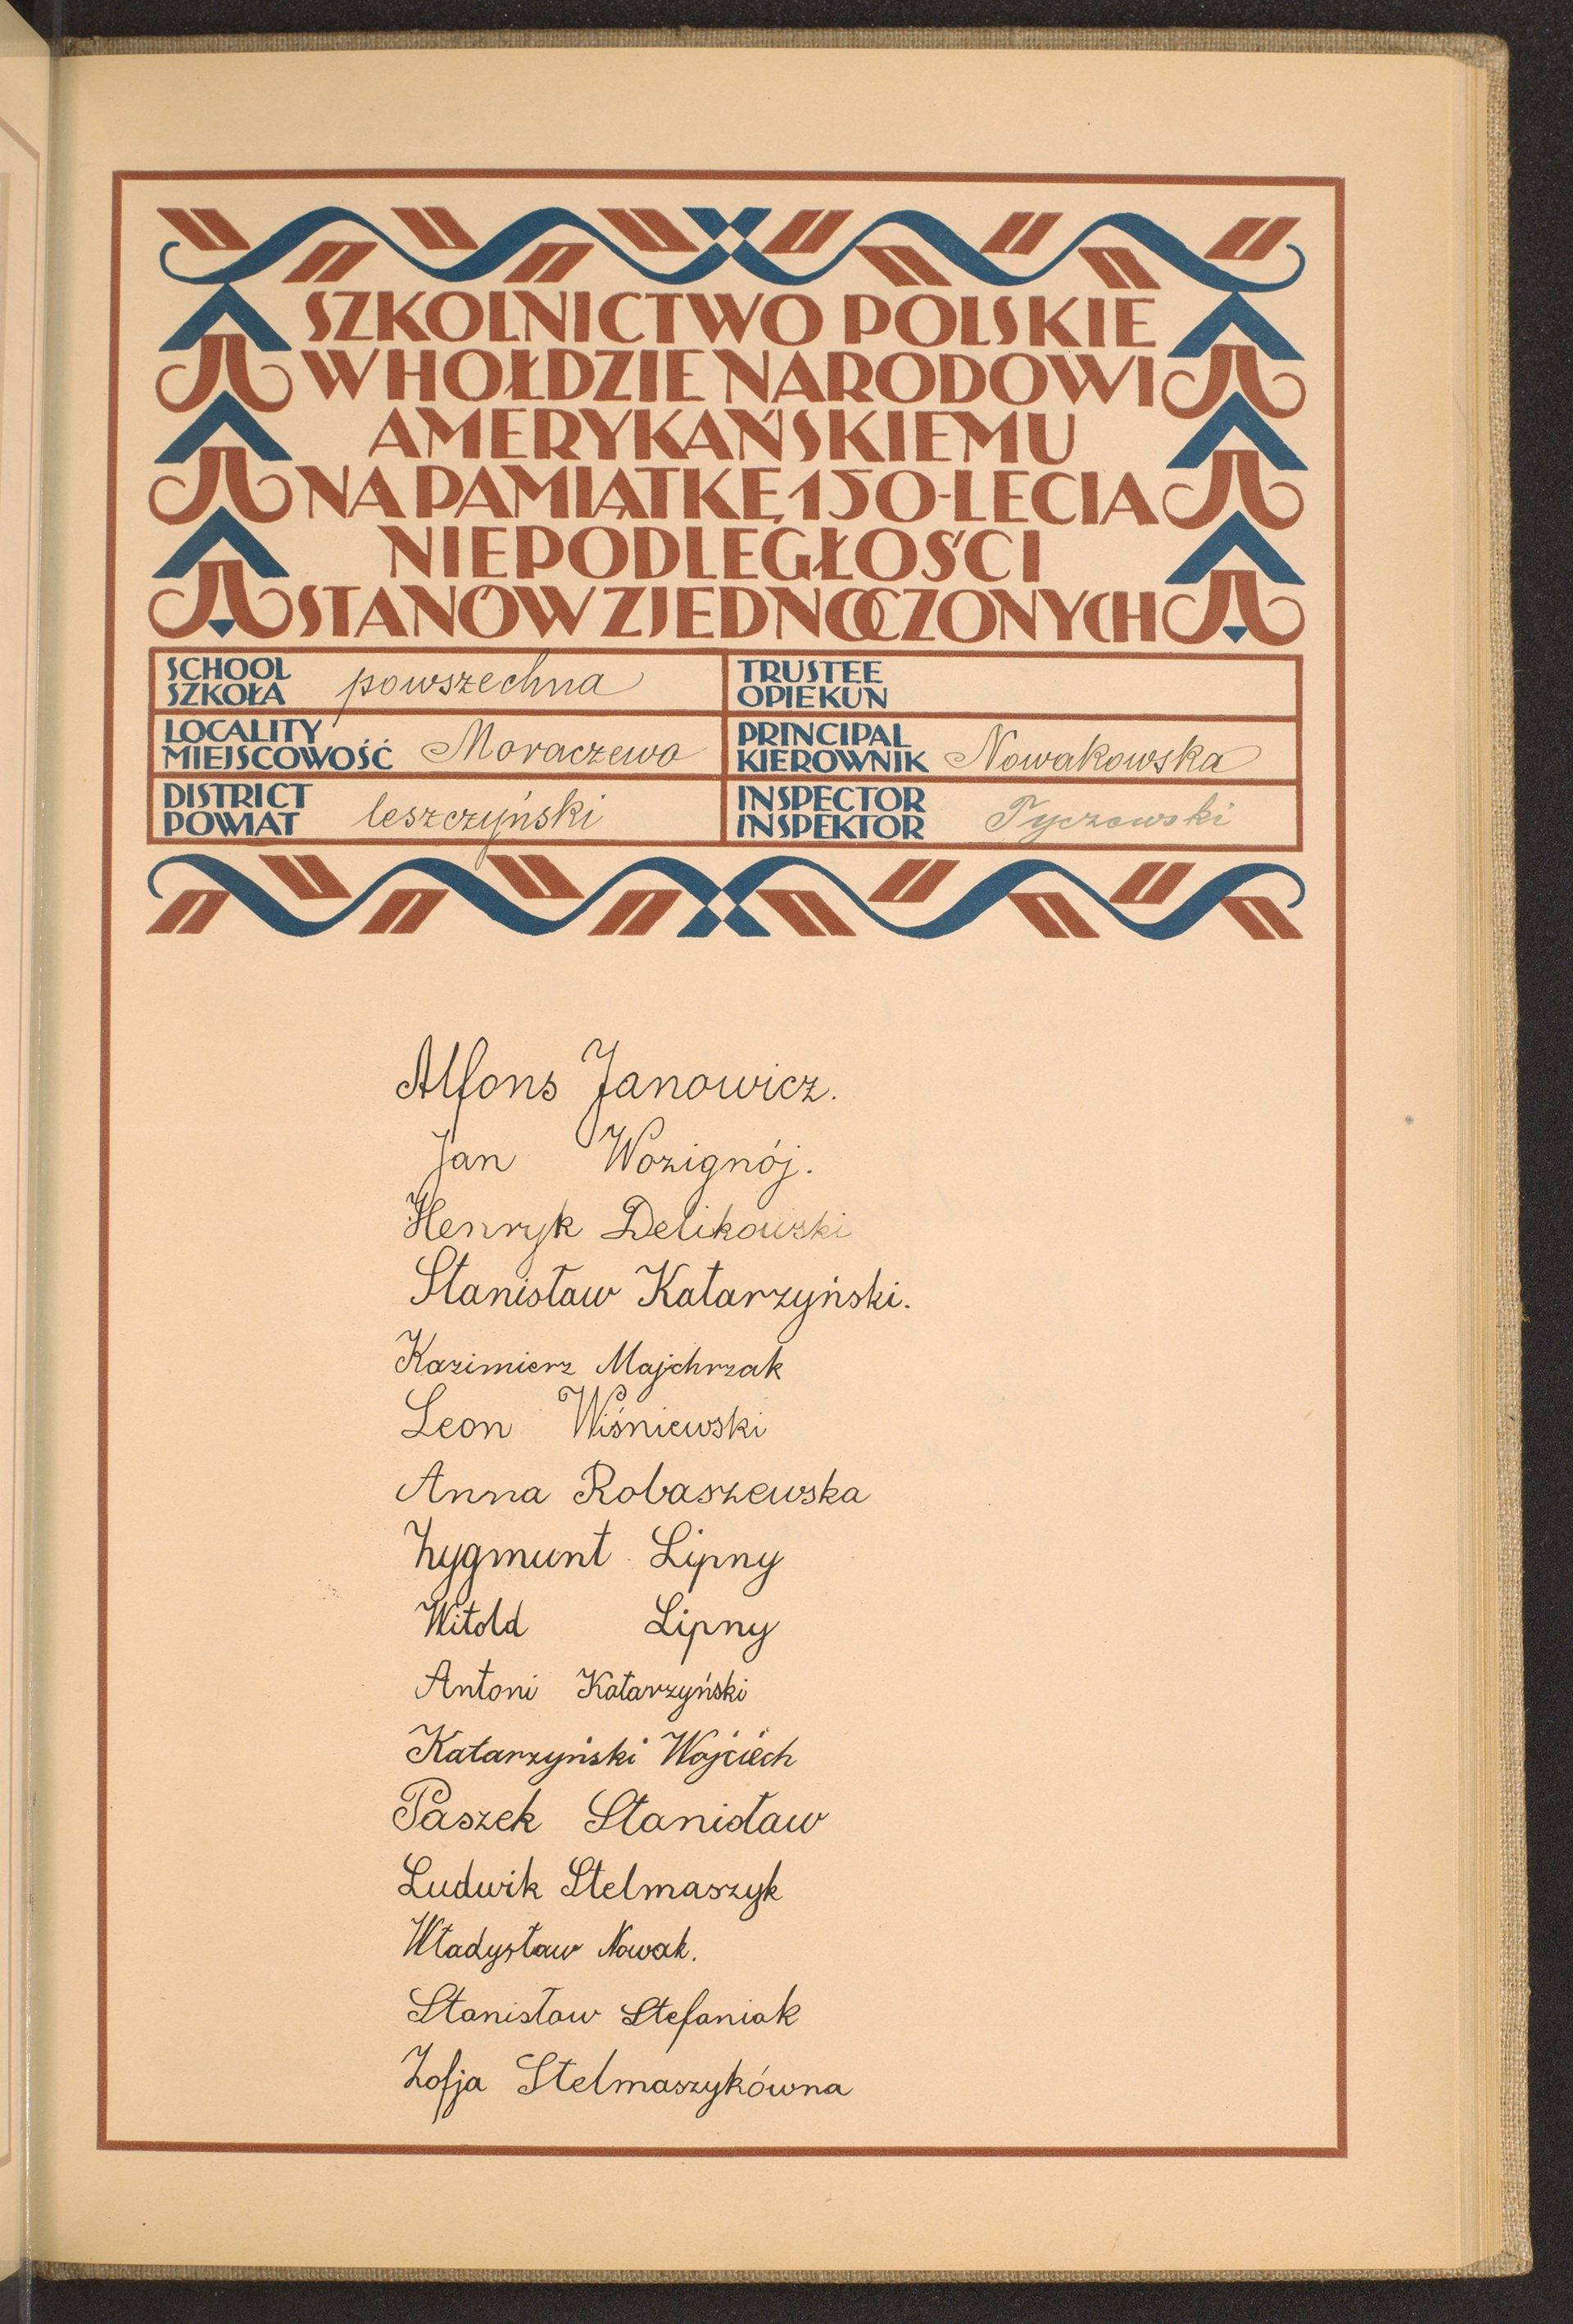 SZKOLNICTWO POLSKIE
W HOŁDZIE NARODOWI
AMERYKAŃSKIEMU
NA PAMIĄTKĘ 150-LECIA
NIEPODLEGŁOŚCI
STANÓW ZJEDNOCZONYCH
SCHOOL
SZKOŁA powszechna
TRUSTEE
OPIEKUN
LOCALITY
MIEJSCOWOŚĆ Moraczewo
PRINCIPAL
KIEROWNIK Nowakowska
DISTRICT
POWIAT leszczyński
INSPECTOR
INSPEKTOR Tyczewski
Alfons Janowicz.
Jan Wozignój.
Henryk Delikowski
Stanisław Katarzyński.
Kazimierz Majchrzak
Leon Wiśniewski
Anna Robaszewska
Zygmunt Lipny
Witold Lipny
Antoni Katarzyński
Katarzyński Wojciech
Paszek Stanisław
Ludwik Stelmaszyk
Władysław Nowak.
Stanisław Stefaniak
Zofja Stelmaszykówna